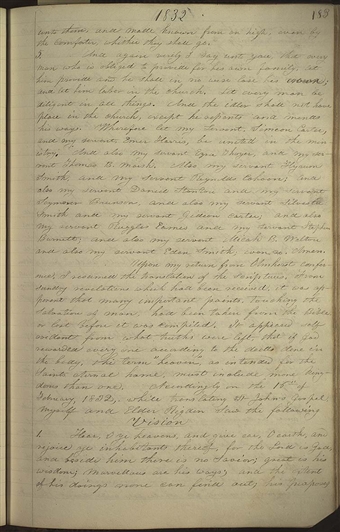 1832 183
unto them and made known from on high, even by
the comforter, whither they shall go.
5. And again, verily I say unto you, that every
man who is obliged to provide for his own family, let
him provide and he shall in no wise lose his crown;
and let him labor in the church. Let every man be
diligent in all things. And the idler shall not have
place in the church, except he repents and mends
his ways. Wherefore let my servant Simeon Carter,
and my servant Emer Harris, be united in the min-
istry, And also my servant Ezra Thayre, and my ser-
vant Thomas B. Marsh; Also my servant Hyrum
Smith and my servant Reynolds Cahoon; and
also my servant Daniel Stanton and my servant
Seymour Brunson, and also my servant Sylvester
Smith and my servant Gideon Carter, and also
my servant Ruggles Eames and my servant Stephen
Burnett, and also my servant Micah B. Welton
and also my servant Eden Smith, even so. Amen.
Upon my return from Amherst confer-
ence, I resumed the translation of the Scriptures. From
sundry revelations which had been received, it was ap-
parent that many important points, touching the
salvation of man, had been taken from the Bible
or lost before it was compiled. It appeared self-
evident from what truths were left, that if God
rewarded every one according to the deeds done in
the body, the term heaven, as intended for the
Saints eternal home, must include more king-
doms than one. Accordingly on the 16th of
February, 1832, while translating St John's Gospel,
myself and Elder Rigdon saw the following
Vision
1. Hear, O ye heavens, and give ear, O earth, and
rejoice ye inhabitants thereof, for the Lord is God,
and beside him there is no Savior; great is his
wisdom; marvellous are his ways; and the extent
of his doings none can find out; his purposes